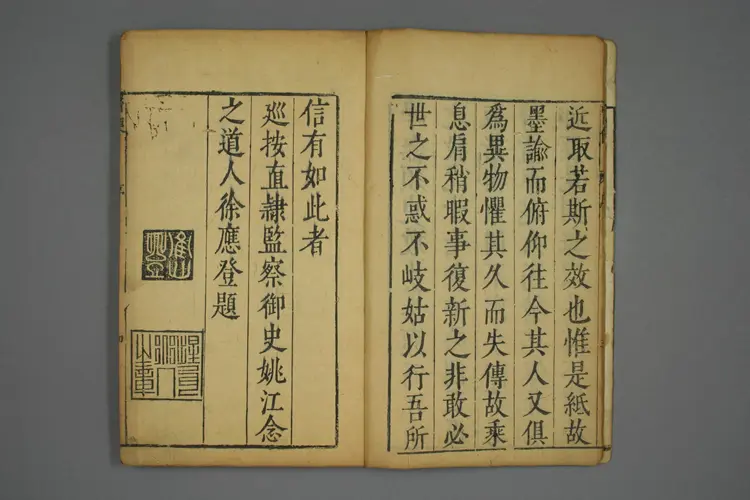 近取若斯之效也惟是紙故
墨諭而俯仰往今其人又俱
為異物懼其久而失傳故乘
息肩稍暇事復新之非敢必
世之不惑不岐姑以行吾所
信有如此者
巡按直隸監察御史姚江念
之道人徐應登題